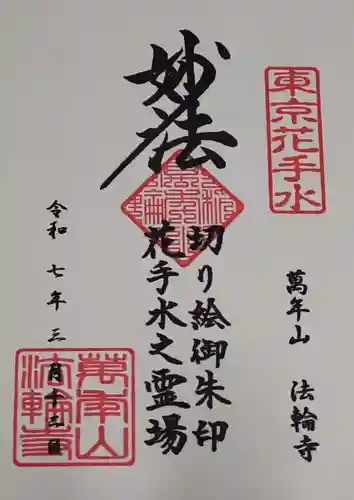 東京花手水
萬年山 法輪寺
妙法
切り絵御朱印
花手水之霊場
令和 七年 三月十三日
萬年山
法輪寺